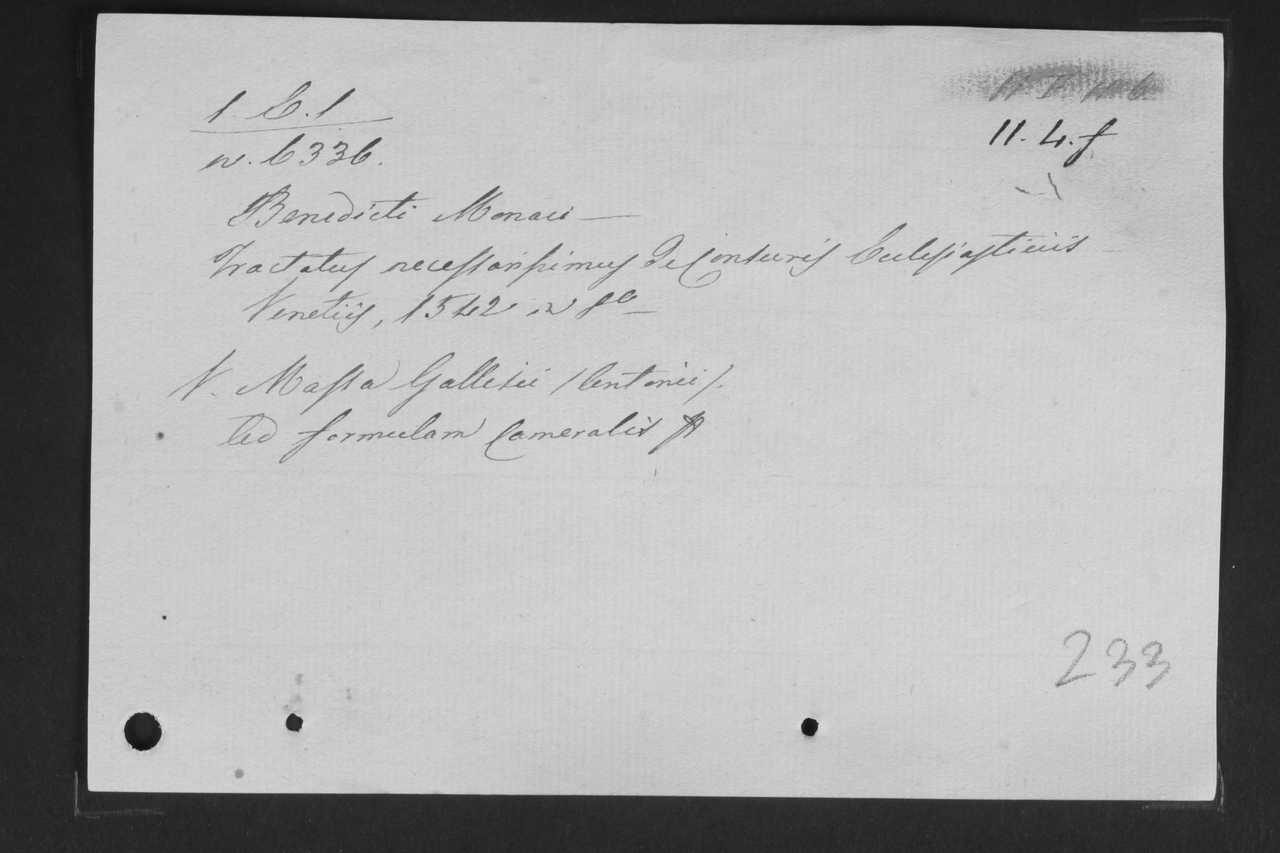 1. E. 1
11. 4. f
n. 6336.
Benedicti Monaci —
Tractatus necessarissimus de Censuris Ecclesiasticis
Venetiis, 1542 in 8o —
V. Massa Gallesii (Antonii).
Ad formulam Cameralis
233